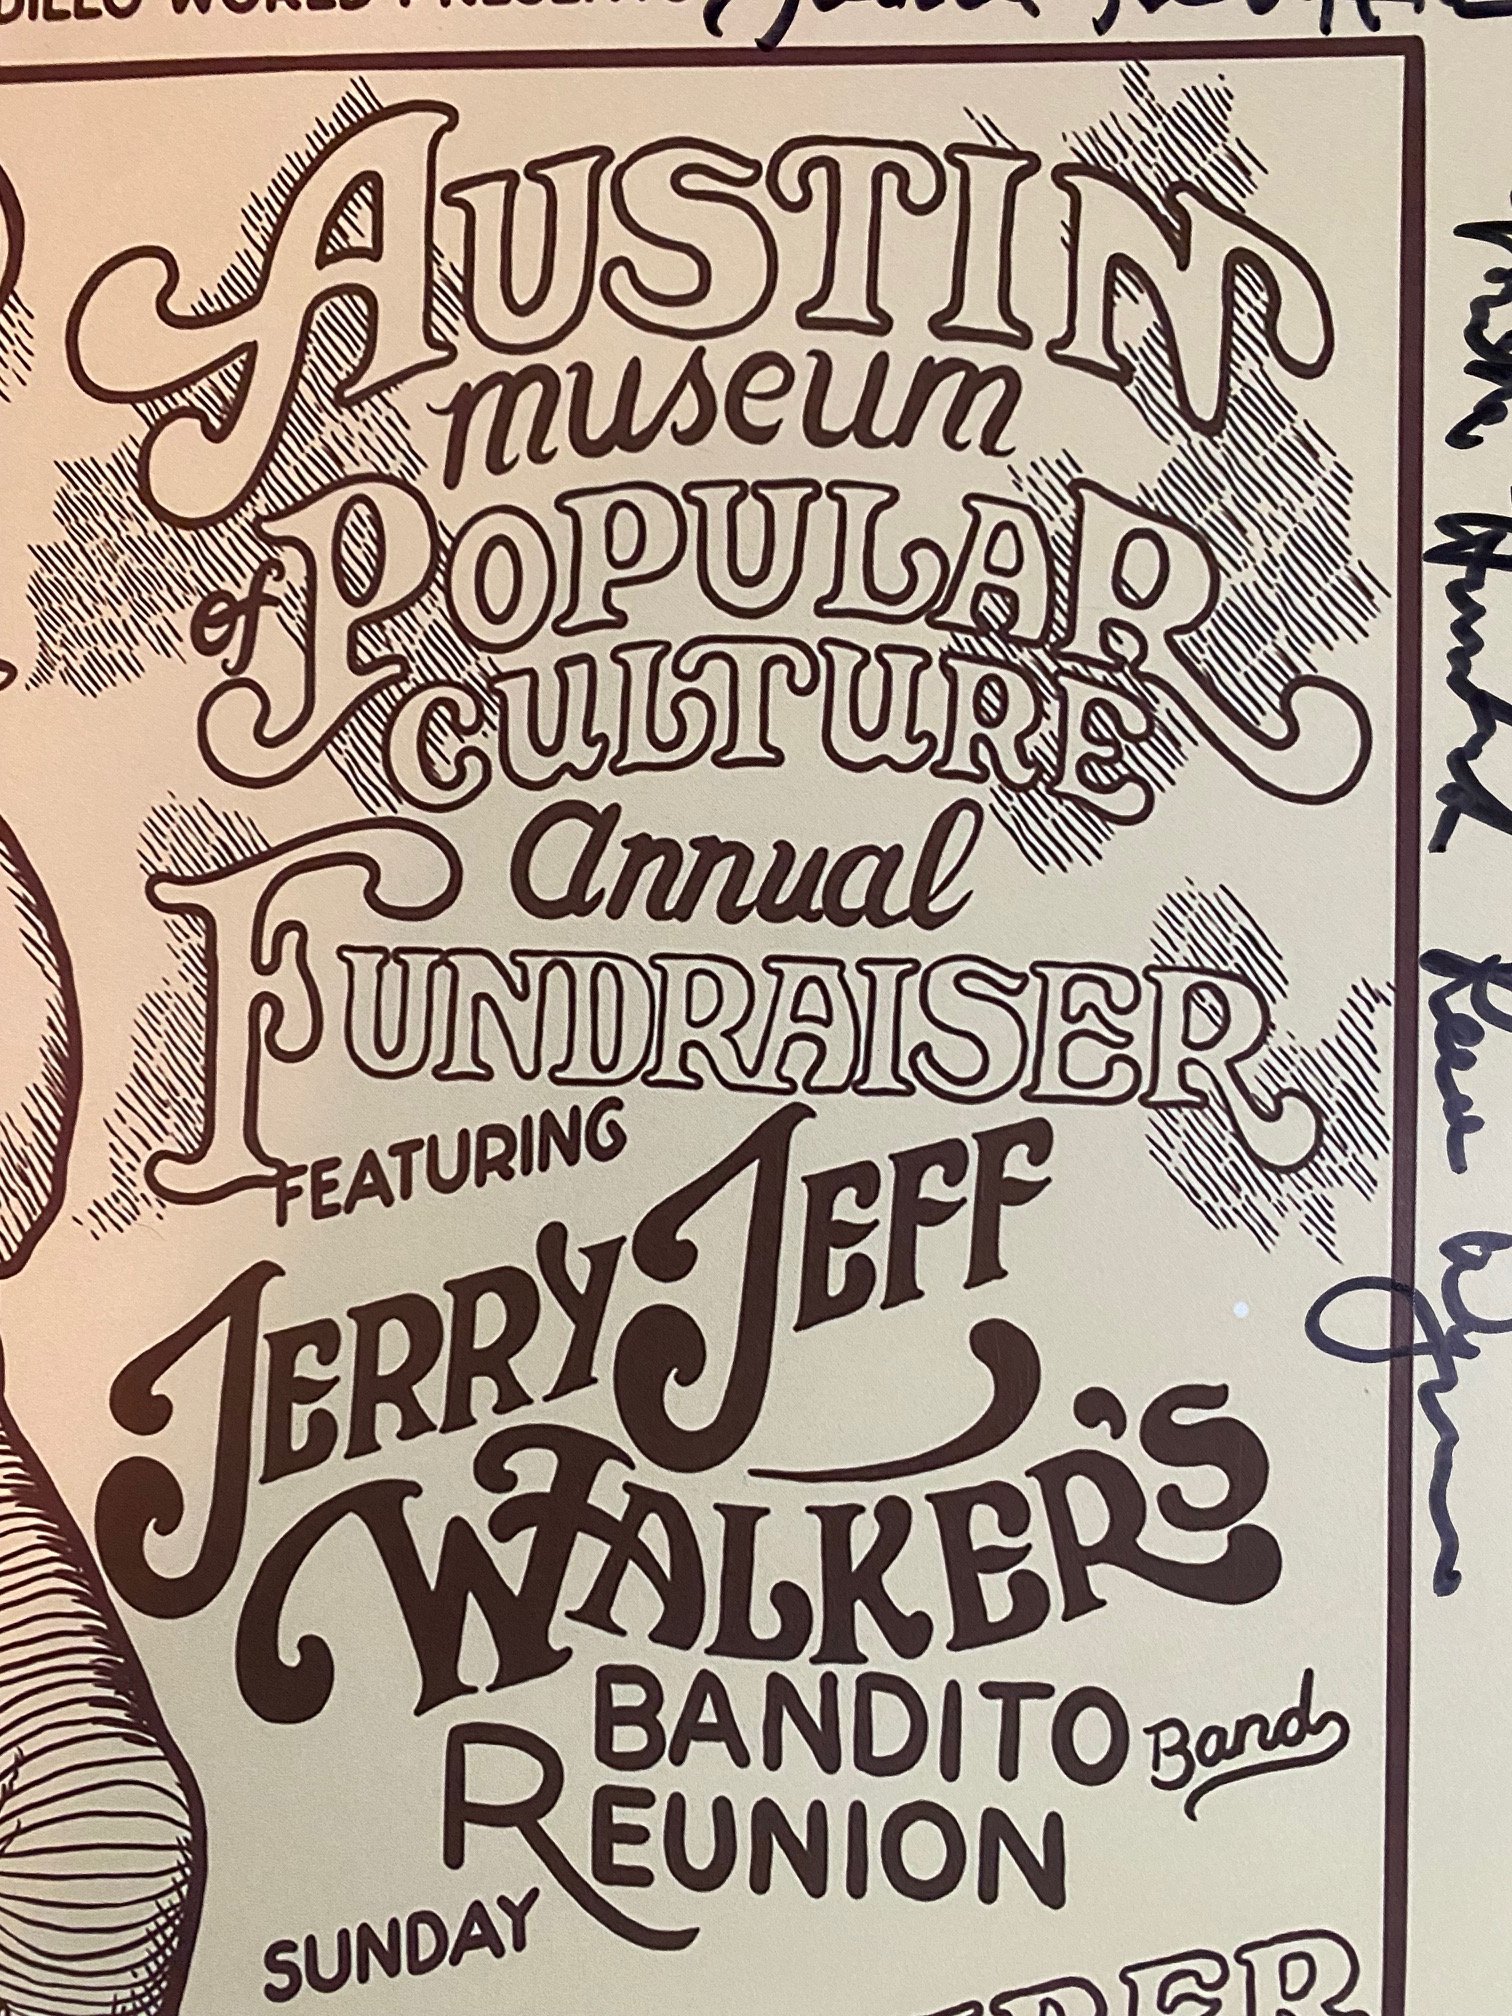 WORLD PRESENTS
AUSTIN
museum
of POPULAR
CULTURE
annual
FUNDRAISER
FEATURING
JERRY JEFF
WALKER'S
BANDITO Band
REUNION
SUNDAY